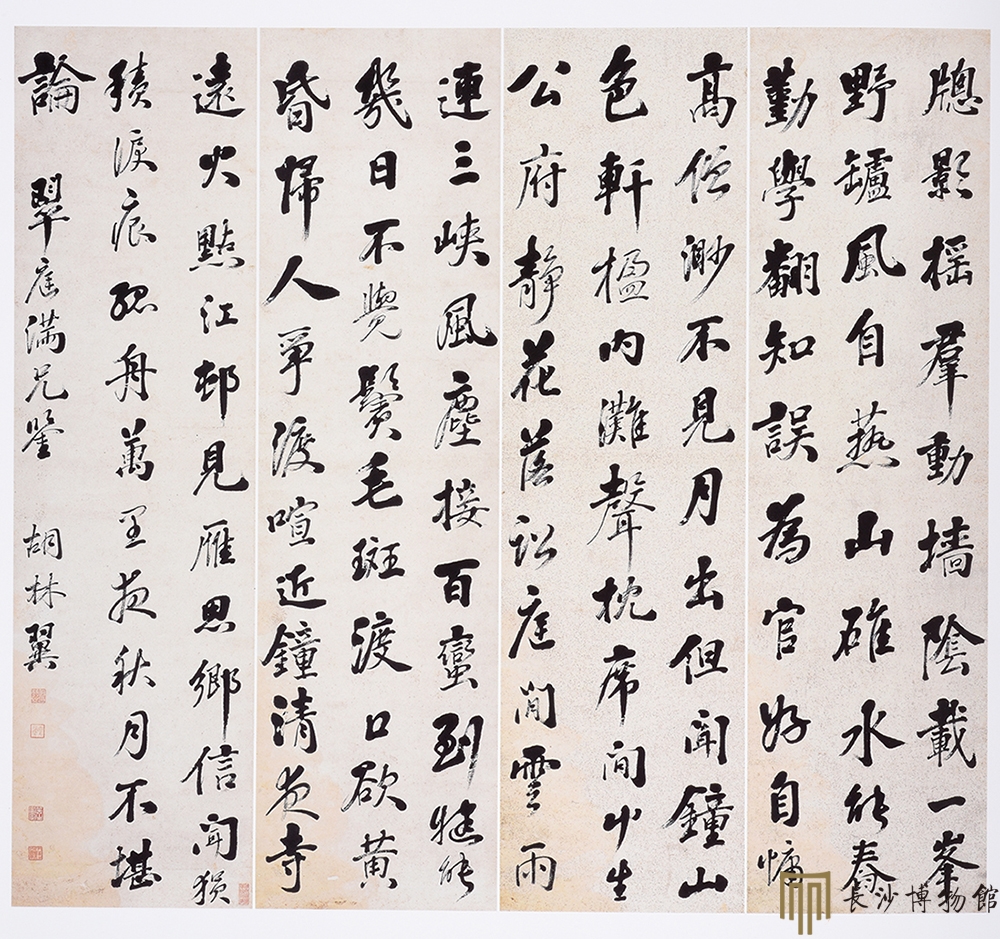 牕影搖羣動墻陰載一峯
野罏風自爇山碓水能舂
勤學翻知誤為官好自慵
高僧渺不見月出但聞鐘山
色軒楹內灘聲枕席間艸生
公府靜花落訟庭閒雲雨
連三峽風塵接百蠻到㹅能
幾日不覺鬢毛斑渡口欲黃
昏歸人爭渡喧近鐘清夜寺
遠火點江邨見雁思鄉信聞猿
積淚痕孤舟萬里夜秋月不堪
論
翠庭滿兄鑒 胡林翼
長沙博物館